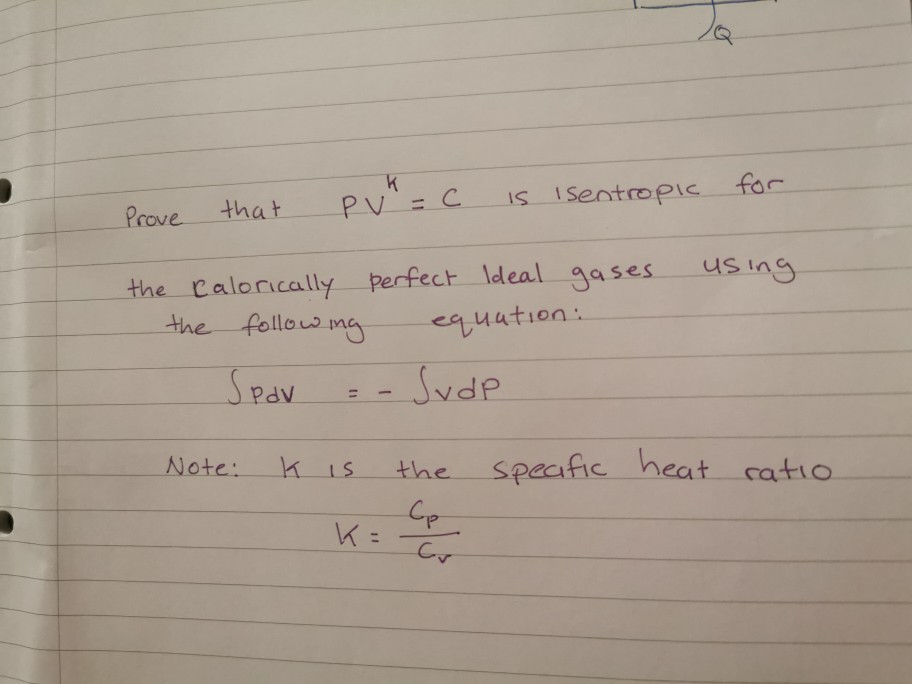 Q
Prove that PV^k = C is isentropic for
the calorically perfect Ideal gases using
the following equation:
∫PdV = - ∫vdP
Note: K is the specific heat ratio
K = Cp/Cv